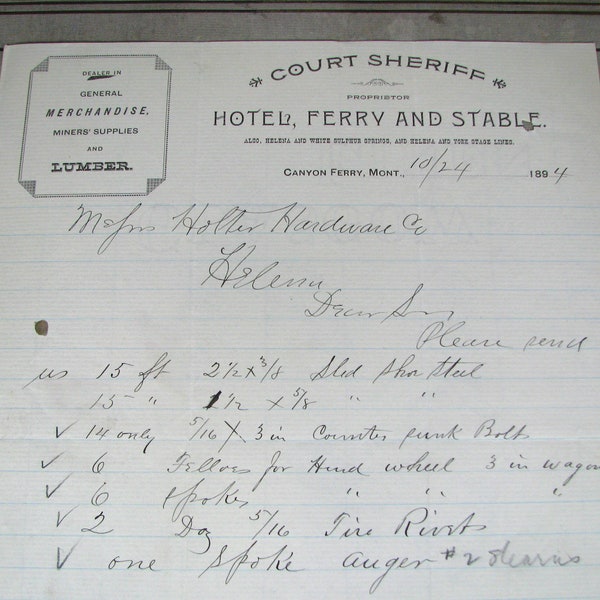 DEALER IN
GENERAL
MERCHANDISE,
MINERS' SUPPLIES
AND
LUMBER.
COURT SHERIFF
PROPRIETOR
HOTEL, FERRY AND STABLE.
ALSO, HELENA AND WHITE SULPHUR SPRINGS, AND HELENA AND YORK STAGE LINES.
CANYON FERRY, MONT., 10/24 1894
Messrs Holter Hardware Co
Helena
Dear Sir,
Please send
us 15 ft 2 1/2 x 3/8 Sled Shoe Steel
15 " 1 1/2 x 5/8 " "
✓ 14 only 5/16 x 3 in Counter sunk Bolts
✓ 6 Felloes for Hind wheel 3 in wagon
✓ 6 spokes " " "
✓ 2 Doz 5/16 Tire Rivets
✓ one Spoke auger #2 Stearns